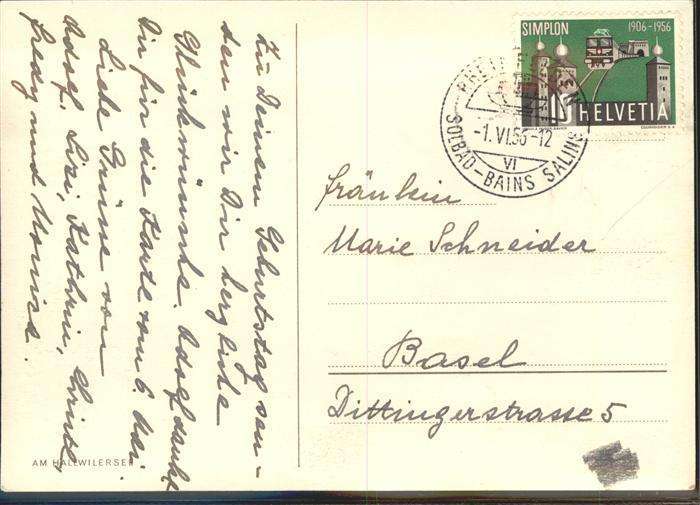 Zu Deinem Geburtstag sen-
den wir Dir herzliche
Glückwünsche. Adolf dankt
Dir für die Karte vom 6. Mai.
Liebe Grüsse von
Adolf, Lisi, Kathrin, Christa,
Fredy und Monica.
AM HALLWILERSEE
SIMPLON 1906-1956
HELVETIA
COURVOISIER S.A.
-1.VI.56-12
VI
SOLBAD-BAINS SALINS
Fräulein
Marie Schneider
Basel
Dittingerstrasse 5